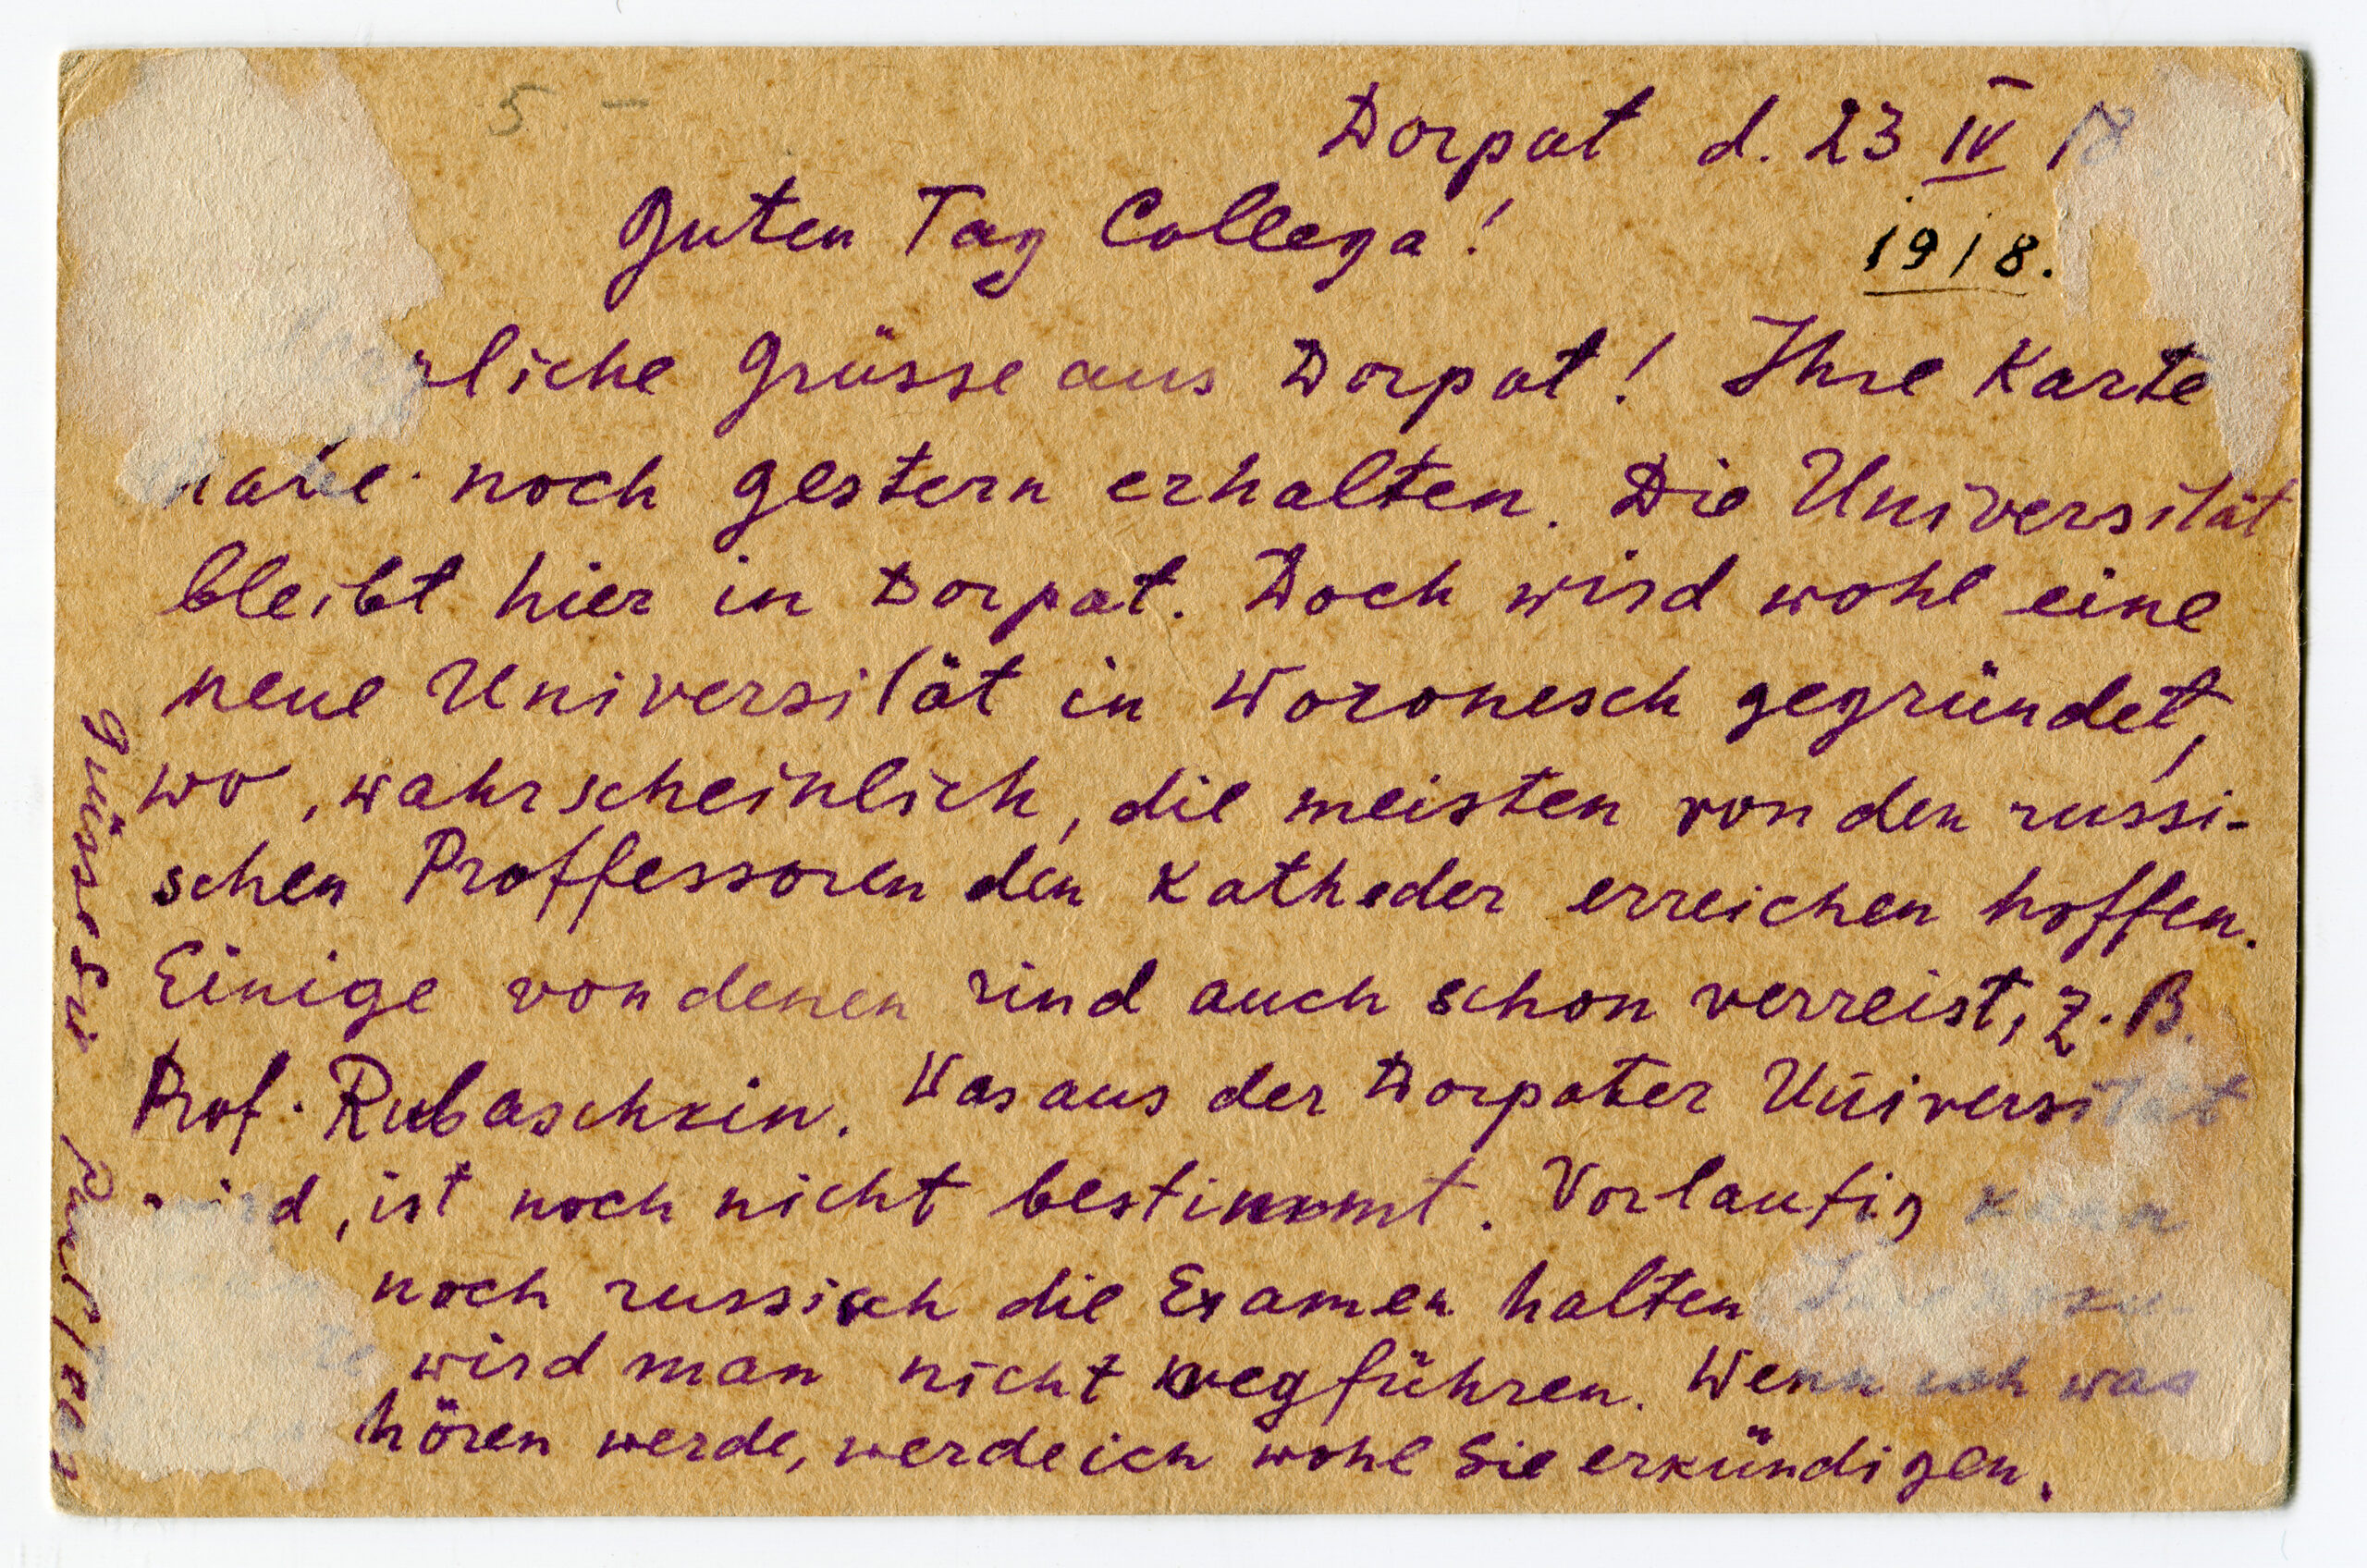 5.–
Dorpat d. 23 IV 18
1918.
Guten Tag Collega!
rliche Grüsse aus Dorpat! Ihre Karte
habe noch gestern erhalten. Die Universität
bleibt hier in Dorpat. Doch wird wohl eine
neue Universität in Woronesch gegründet,
wo, wahrscheinlich, die meisten von den russi-
schen Proffessoren den Katheder erreichen hoffen.
Einige von denen sind auch schon verreist, z. B.
Prof. Rubaschkin. Was aus der Dorpater Universität
wird, ist noch nicht bestimmt. Vorlaufig kann
noch russisch die Examen halten
wird man nicht wegführen. Wenn ich was
hören werde, werde ich wohl Sie erkündigen.